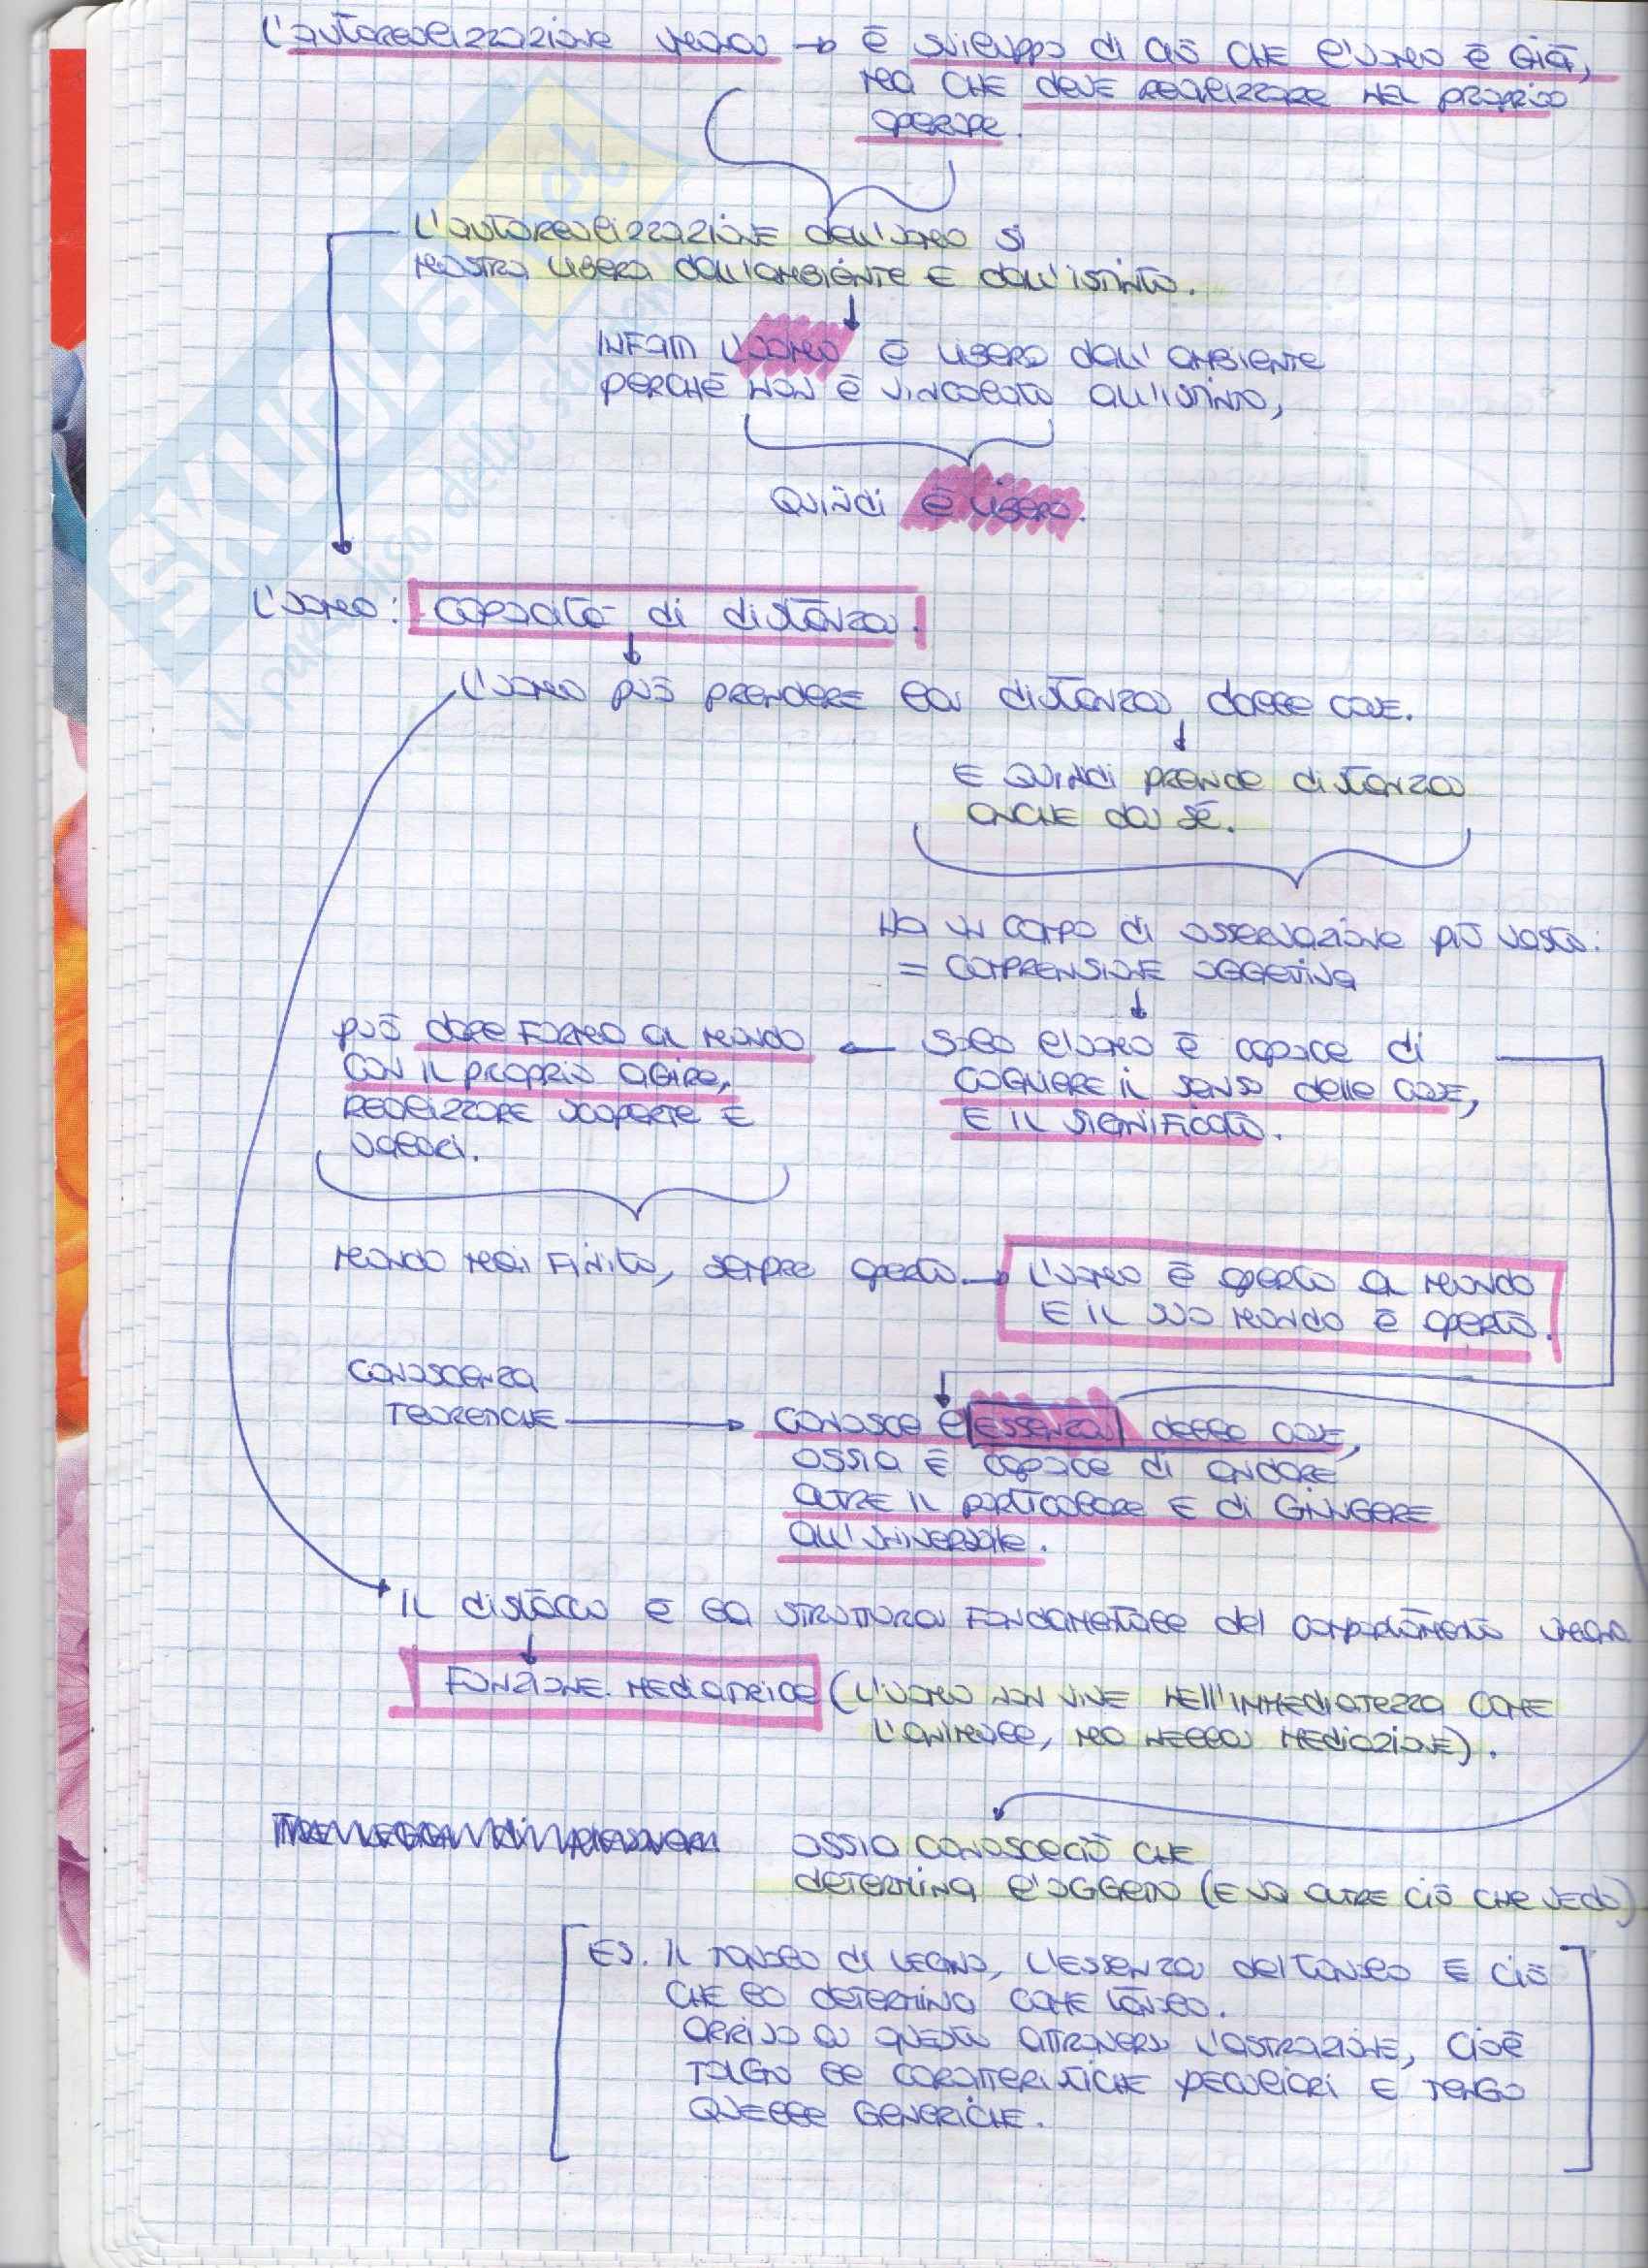 L'autorealizzazione umana → è sviluppo di ciò che l'uomo è già,
ma che deve realizzare nel proprio
operare.
L'autorealizzazione dell'uomo si
mostra libera dall'ambiente e dall'istinto.
Infatti l'uomo è libero dall'ambiente
perché non è vincolato all'istinto,
quindi è libero.
L'uomo: capacità di distanza.
L'uomo può prendere la distanza dalle cose.
e quindi prende distanza
anche da sé.
Ha un campo di osservazione più vasto:
= comprensione oggettiva
può dare forma al mondo ← Solo l'uomo è capace di
con il proprio agire, cogliere il senso delle cose,
realizzare scoperte e e il significato.
valori.
mondo mai finito, sempre aperto → L'uomo è aperto al mondo
e il suo mondo è aperto.
conoscenza
teoretiche → conosce l'essenza delle cose,
ossia è capace di andare
oltre il particolare e di giungere
all'universale.
Il distacco è la struttura fondamentale del comportamento umano
Funzione mediatrice (l'uomo non vive nell'immediatezza come
l'animale, ma nella mediazione).
ossia conosce ciò che
determina l'oggetto (e va oltre ciò che vedo)
Es. Il tavolo di legno, l'essenza del tavolo è ciò
che lo determina come tavolo.
Arrivo a questo attraverso l'astrazione, cioè
tolgo le caratteristiche peculiari e tengo
quelle generiche.
SKUOLA.net
il paradiso dello studente